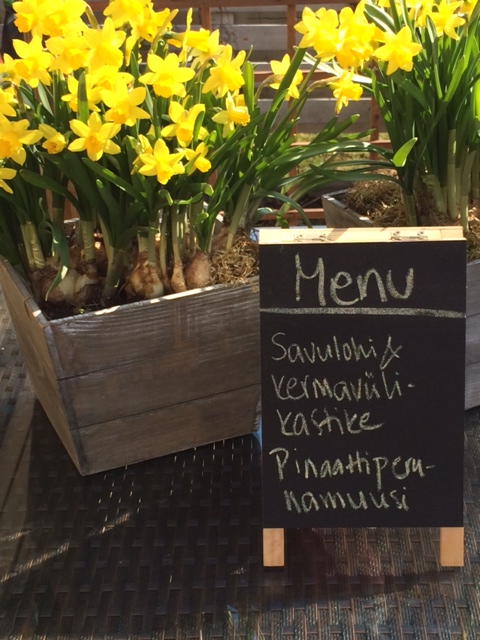 Menu
Savulohi &
kermavüli-
kastike
Pinaattiperu-
namuusi